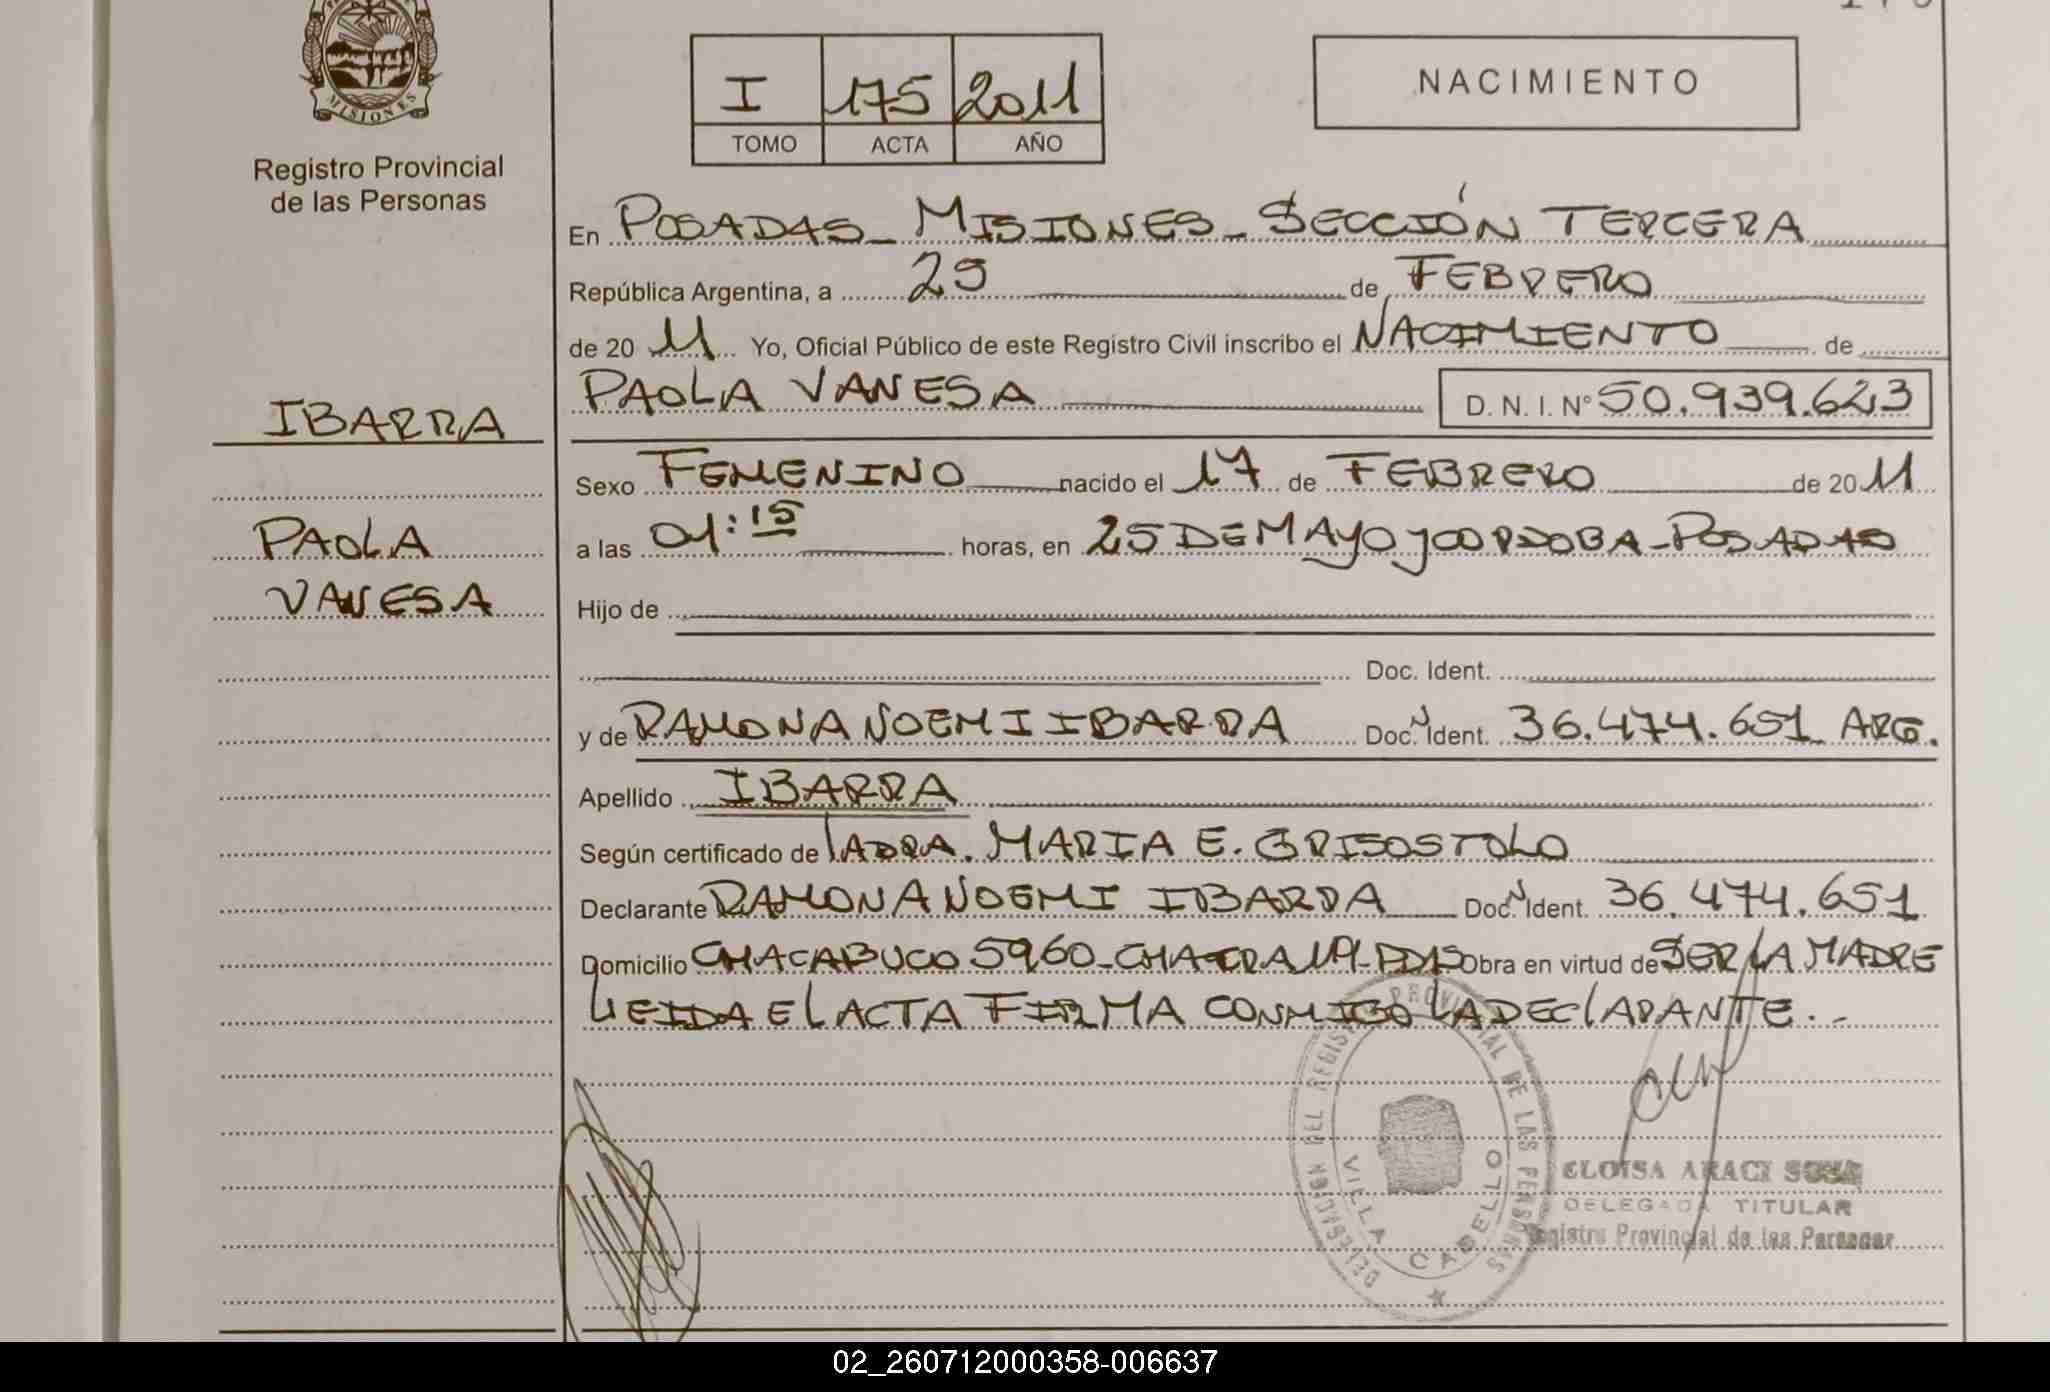 MISIONES
Registro Provincial
de las Personas
I 175 2011
TOMO ACTA AÑO
NACIMIENTO
En POSADAS - MISIONES - SECCIÓN TERCERA
República Argentina, a 25 de FEBRERO
de 20 11 Yo, Oficial Público de este Registro Civil inscribo el NACIMIENTO de
PAOLA VANESA D. N. I. N° 50.939.623
IBARRA
Sexo FEMENINO nacido el 17 de FEBRERO de 20 11
PAOLA
a las 01:15 horas, en 25 DE MAYO y CORDOBA - POSADAS
VANESA
Hijo de
Doc. Ident.
y de RAMONA NOEMI IBARRA Doc. N Ident. 36.474.651 ARG.
Apellido IBARRA
Según certificado de LA DRA. MARIA E. GRISOSTOLO
Declarante RAMONA NOEMI IBARRA Doc. N Ident. 36.474.651
Domicilio CHACABUCO 5960 - CHACRA 191 - PDAS Obra en virtud de SER LA MADRE
LEIDA EL ACTA FIRMA CONMIGO LA DECLARANTE. -
DELEGACION DEL REGISTRO PROVINCIAL DE LAS PERSONAS
VILLA CABELLO
ELOISA ARACI SOSA
DELEGADA TITULAR
Registro Provincial de las Personas
02_260712000358-006637